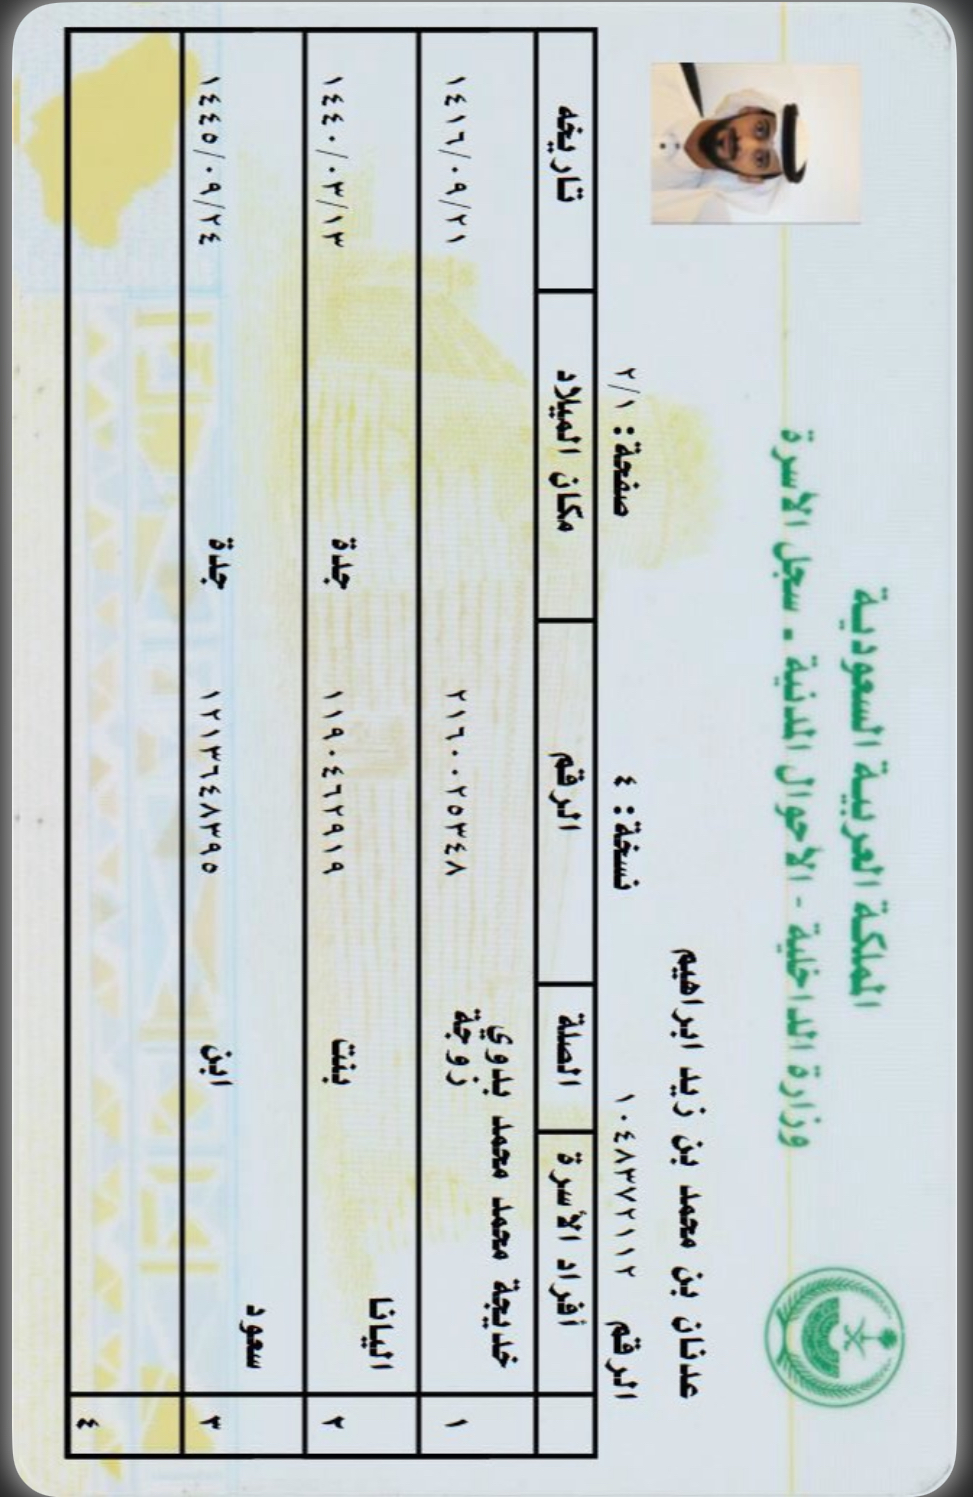 المملكة العربية السعودية
وزارة الداخلية - الأحوال المدنية - سجل الأسرة
عدنان بن محمد بن زيد ابراهيم
الرقم ١٠٤٨٣٧٢١١٢ نسخة: ٤ صفحة: ٢/١
أفراد الأسرة الصلة الرقم مكان الميلاد تاريخه
١ خديجة محمد محمد بدوي زوجة ٢١٦٠٠٢٥٣٤٨ ١٤١٦/٠٩/٢١
٢ اليانا بنت ١١٩٠٤٦٢٩١٩ جدة ١٤٤٠/٠٣/١٣
٣ سعود ابن ١٢١٣٦٤٨٣٩٥ جدة ١٤٤٥/٠٩/٢٤
٤